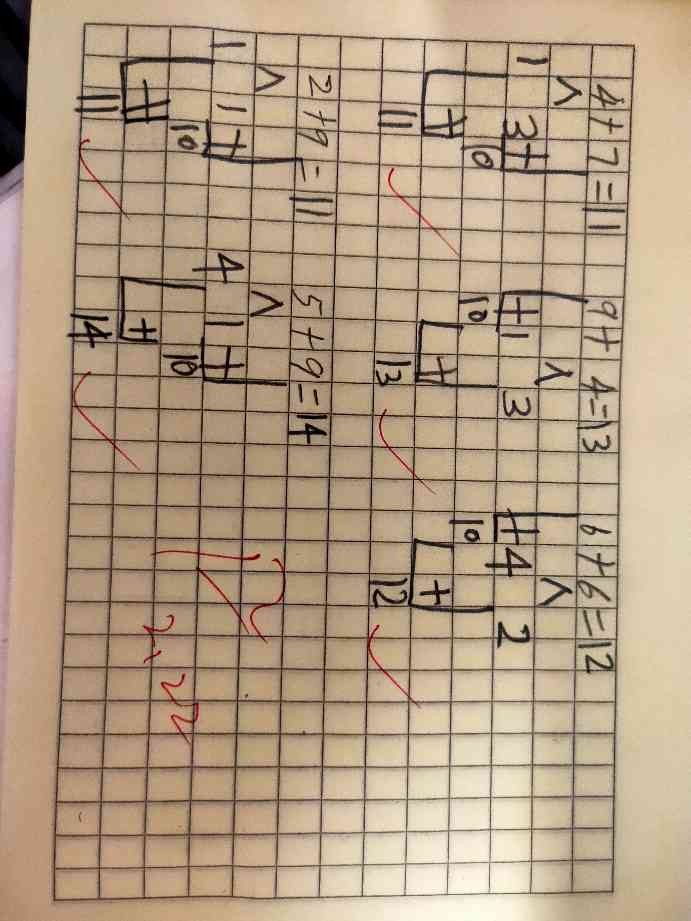 4+7=11 9+4=13 6+6=12
∧ ∧ ∧
1 3 + + 1 3 + 4 2
10 10 10
+ + +
11 13 12
2+9=11 5+9=14
∧ ∧
1 1 + 4 1 +
10 10
+ +
11 14